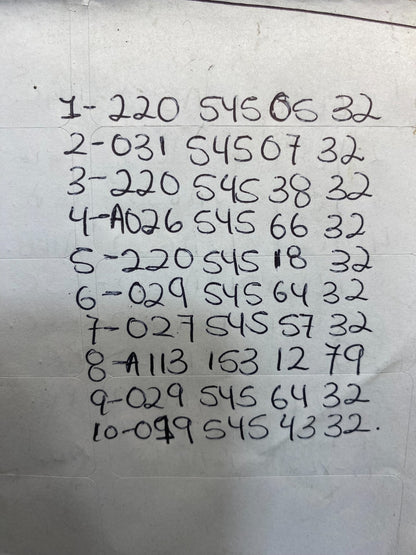 1- 220 545 05 32
2-031 545 07 32
3-220 545 38 32
4-A026 545 66 32
5-220 545 18 32
6-029 545 64 32
7-027 545 57 32
8-A113 153 12 79
9-029 545 64 32
10-019 545 43 32.